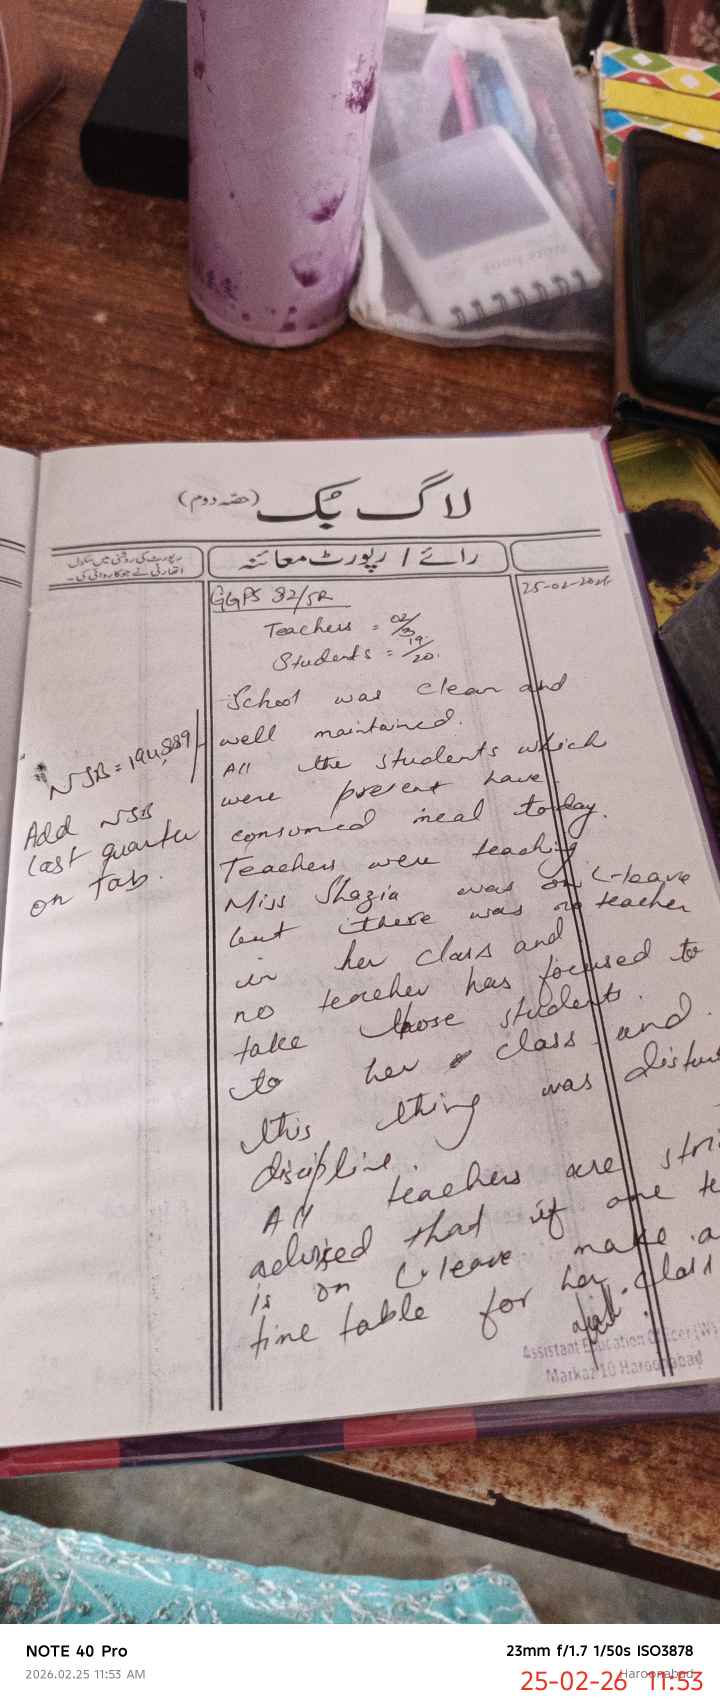 Note book
لاگ بُک (حصّہ دوم)
رائے / رپورٹ معائنہ
رپورٹ کی روشنی میں سکول
اتھارٹی نے جو کارروائی کی۔
25-02-2026
GGPS 82/5R
Teachers = 02/3
Students = 19/20.
School was clean and
well maintained.
All the students which
were present have
consumed meal today.
Teachers were teaching
Miss Shazia was on C-leave
but there was no teacher
in her class and
no teacher has focused to
take those students.
to her class and.
this thing was
discipline.
All teachers are
advised that if one
is on C.leave make a
time table for her class.
NSB = 194,889/-
Add NSB
last quarter
on Tab.
Assistant Education Officer (W)
Markaz 10 Haroonabad
NOTE 40 Pro
2026.02.25 11:53 AM
23mm f/1.7 1/50s ISO3878
Haroonabad
25-02-26 11:53